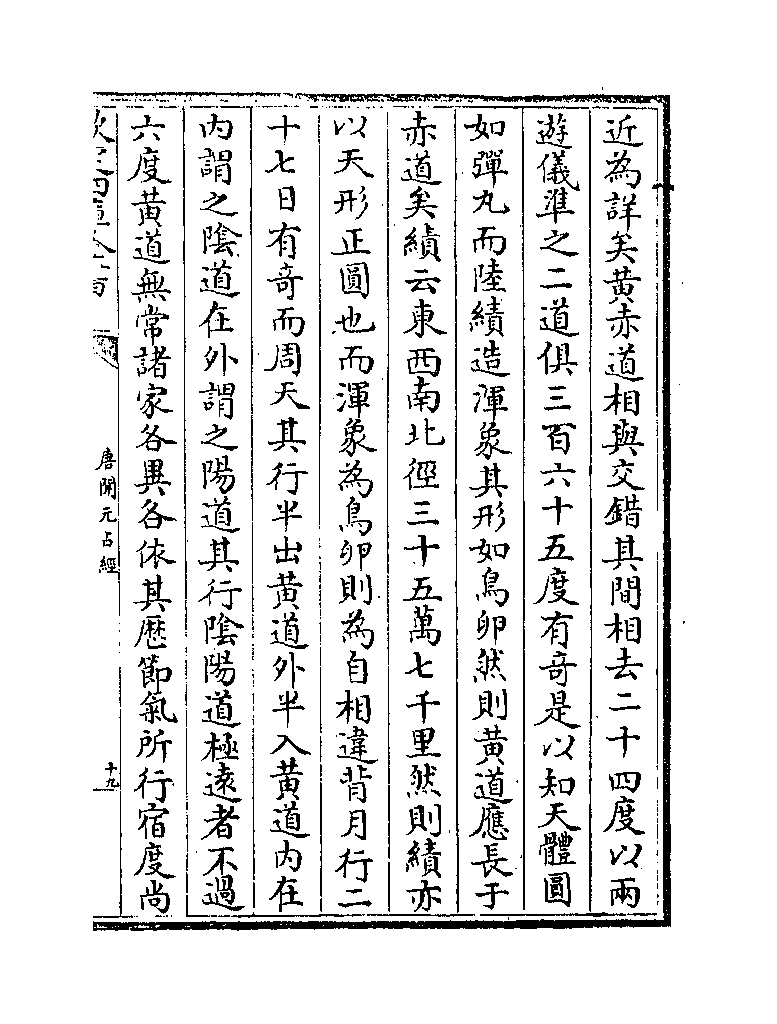 近為詳矣黄赤道相與交錯其間相去二十四度以兩
遊儀準之二道俱三百六十五度有竒是以知天體圓
如彈丸而陸績造渾象其形如鳥卵然則黄道應長于
赤道矣績云東西南北徑三十五萬七千里然則績亦
以天形正圓也而渾象為鳥卵則為自相違背月行二
十七日有竒而周天其行半出黄道外半入黄道内在
内謂之陰道在外謂之陽道其行陰陽道極遠者不過
六度黄道無常諸家各異各依其厯節氣所行宿度尚
唐開元占經
十九